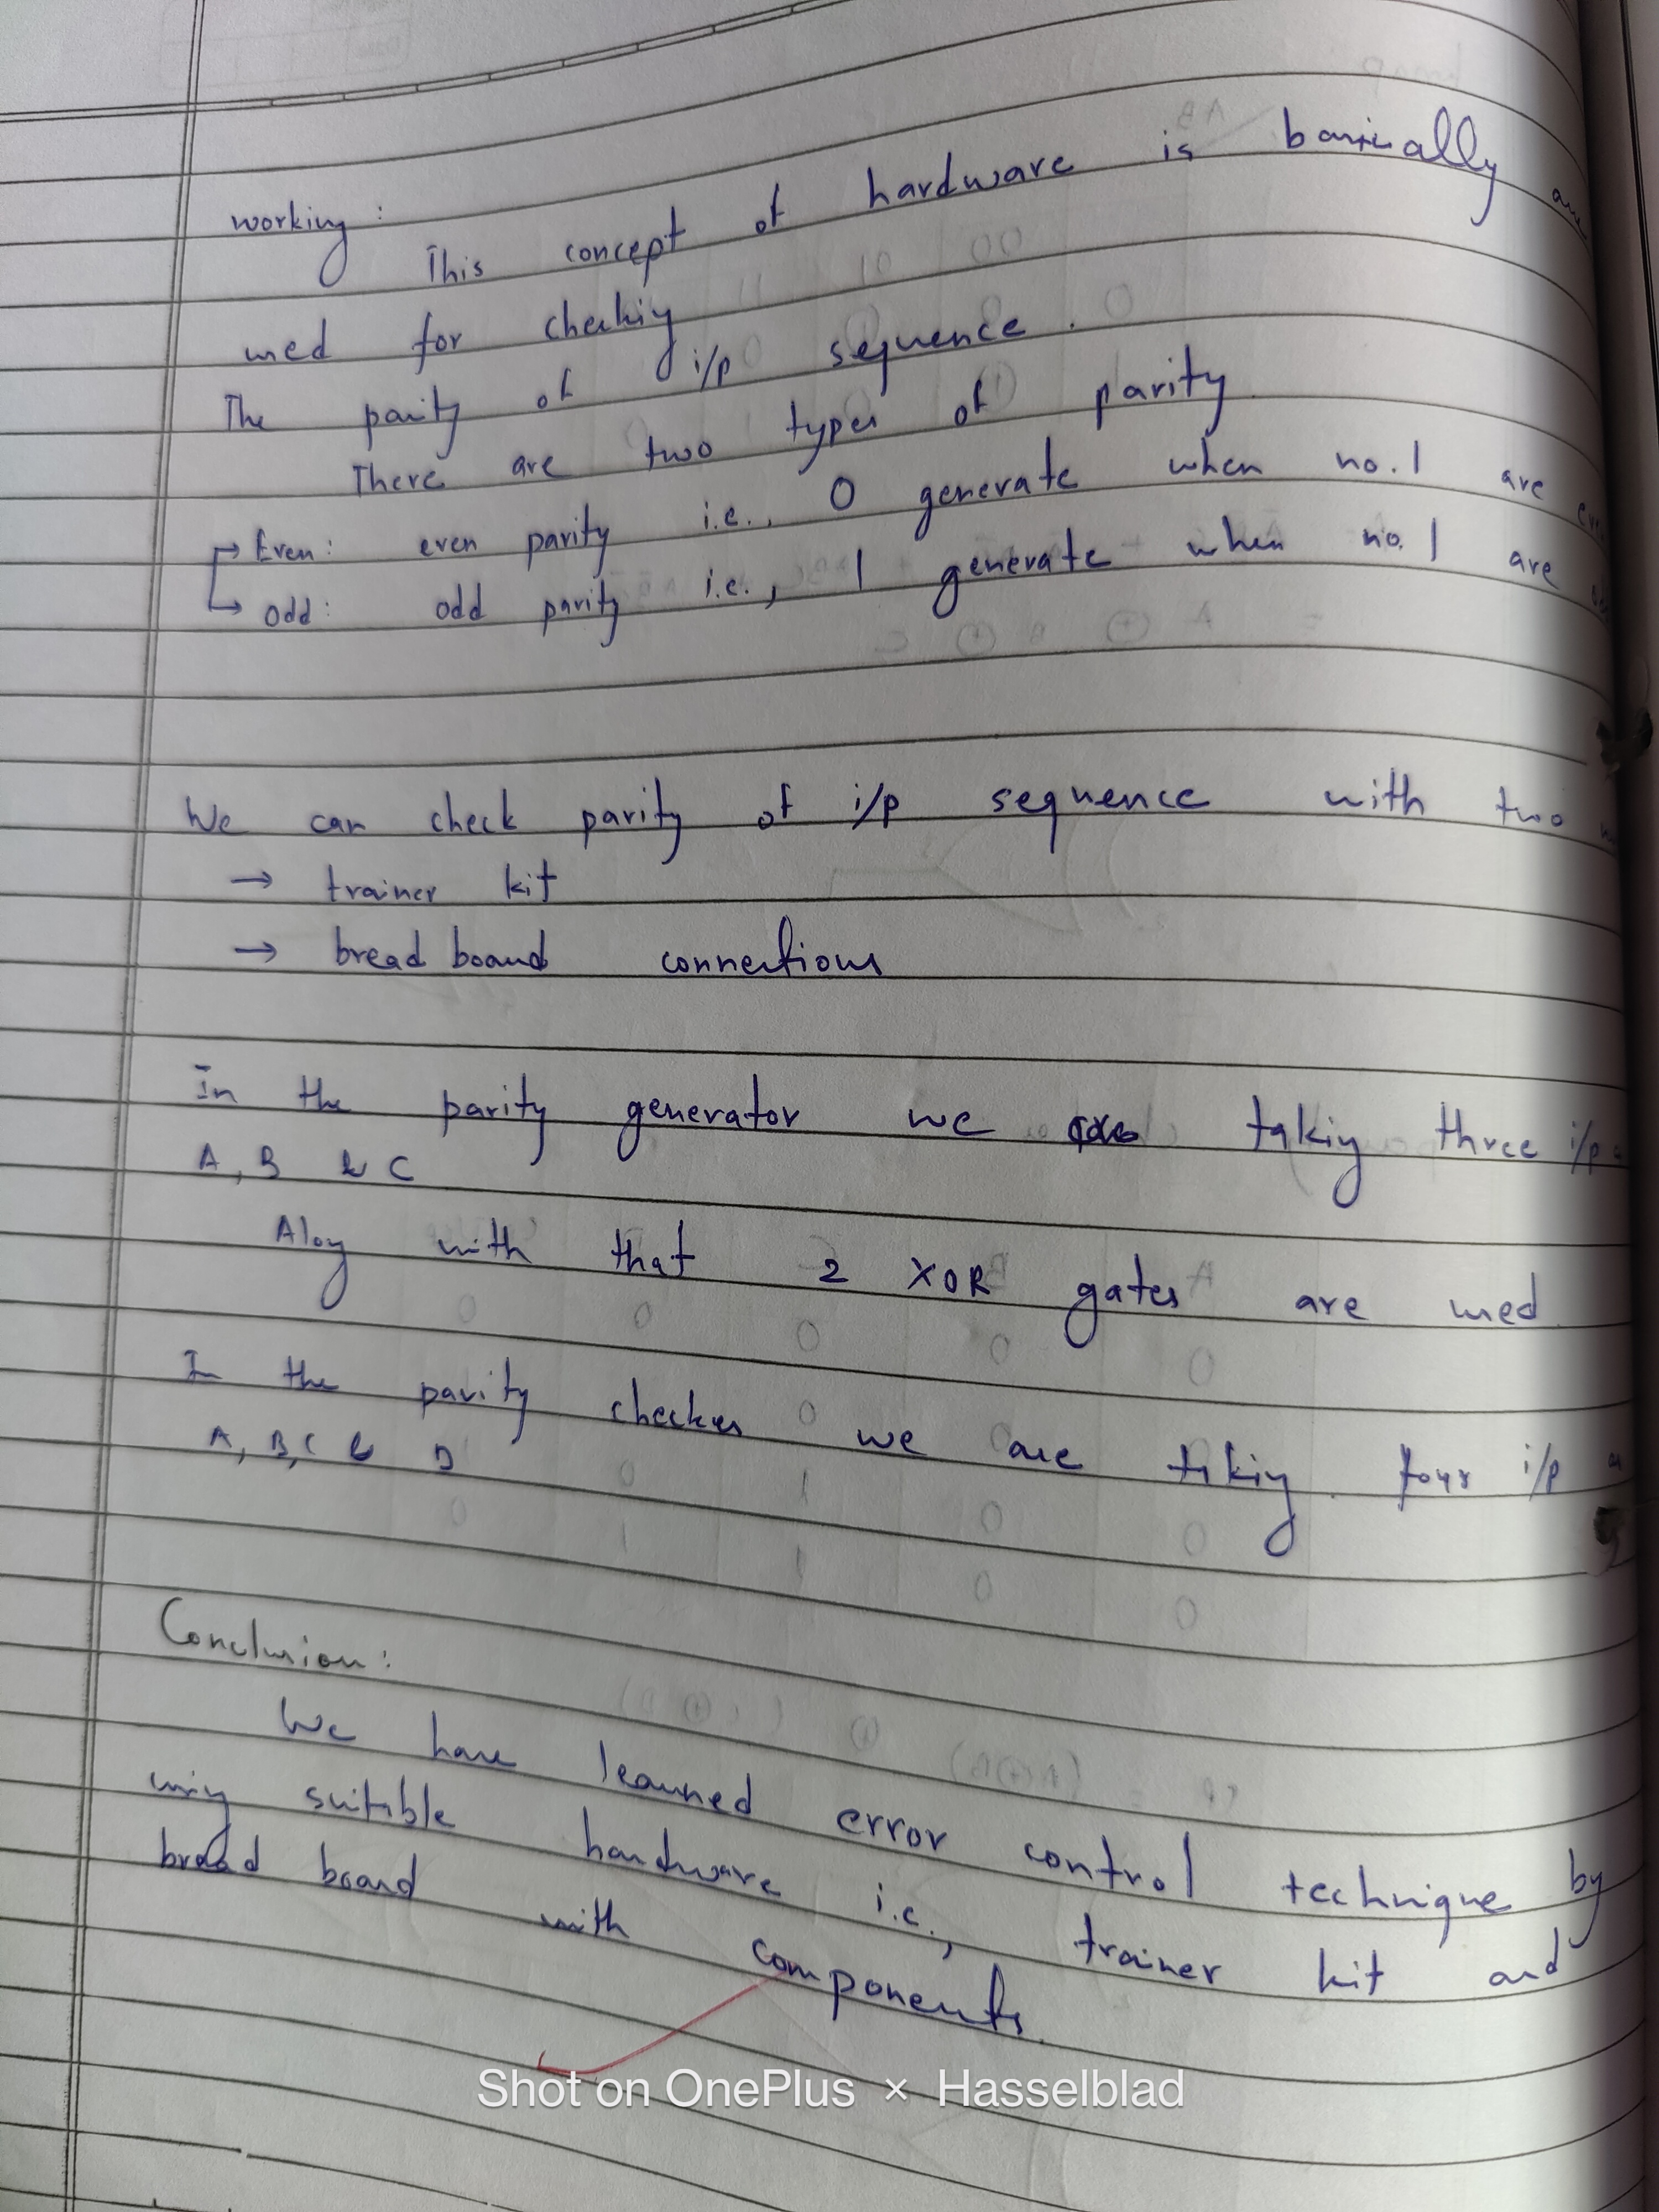 working :
This concept of hardware is basically
used for checking
The parity of i/p sequence .
There are two types of parity
→ Even : even parity i.e., 0 generate when no. 1 are
→ Odd : odd parity i.e., 1 generate when no. 1 are
We can check parity of i/p sequence with two
→ trainer kit
→ bread board connections
In the parity generator we are taking three i/p
A, B & C
Along with that 2 XOR gates are used
In the parity checker we are taking four i/p
A, B, C & D
Conclusion :
We have learned error control technique by
using suitible hardware i.e., trainer kit and
bread board with components.
Shot on OnePlus × Hasselblad